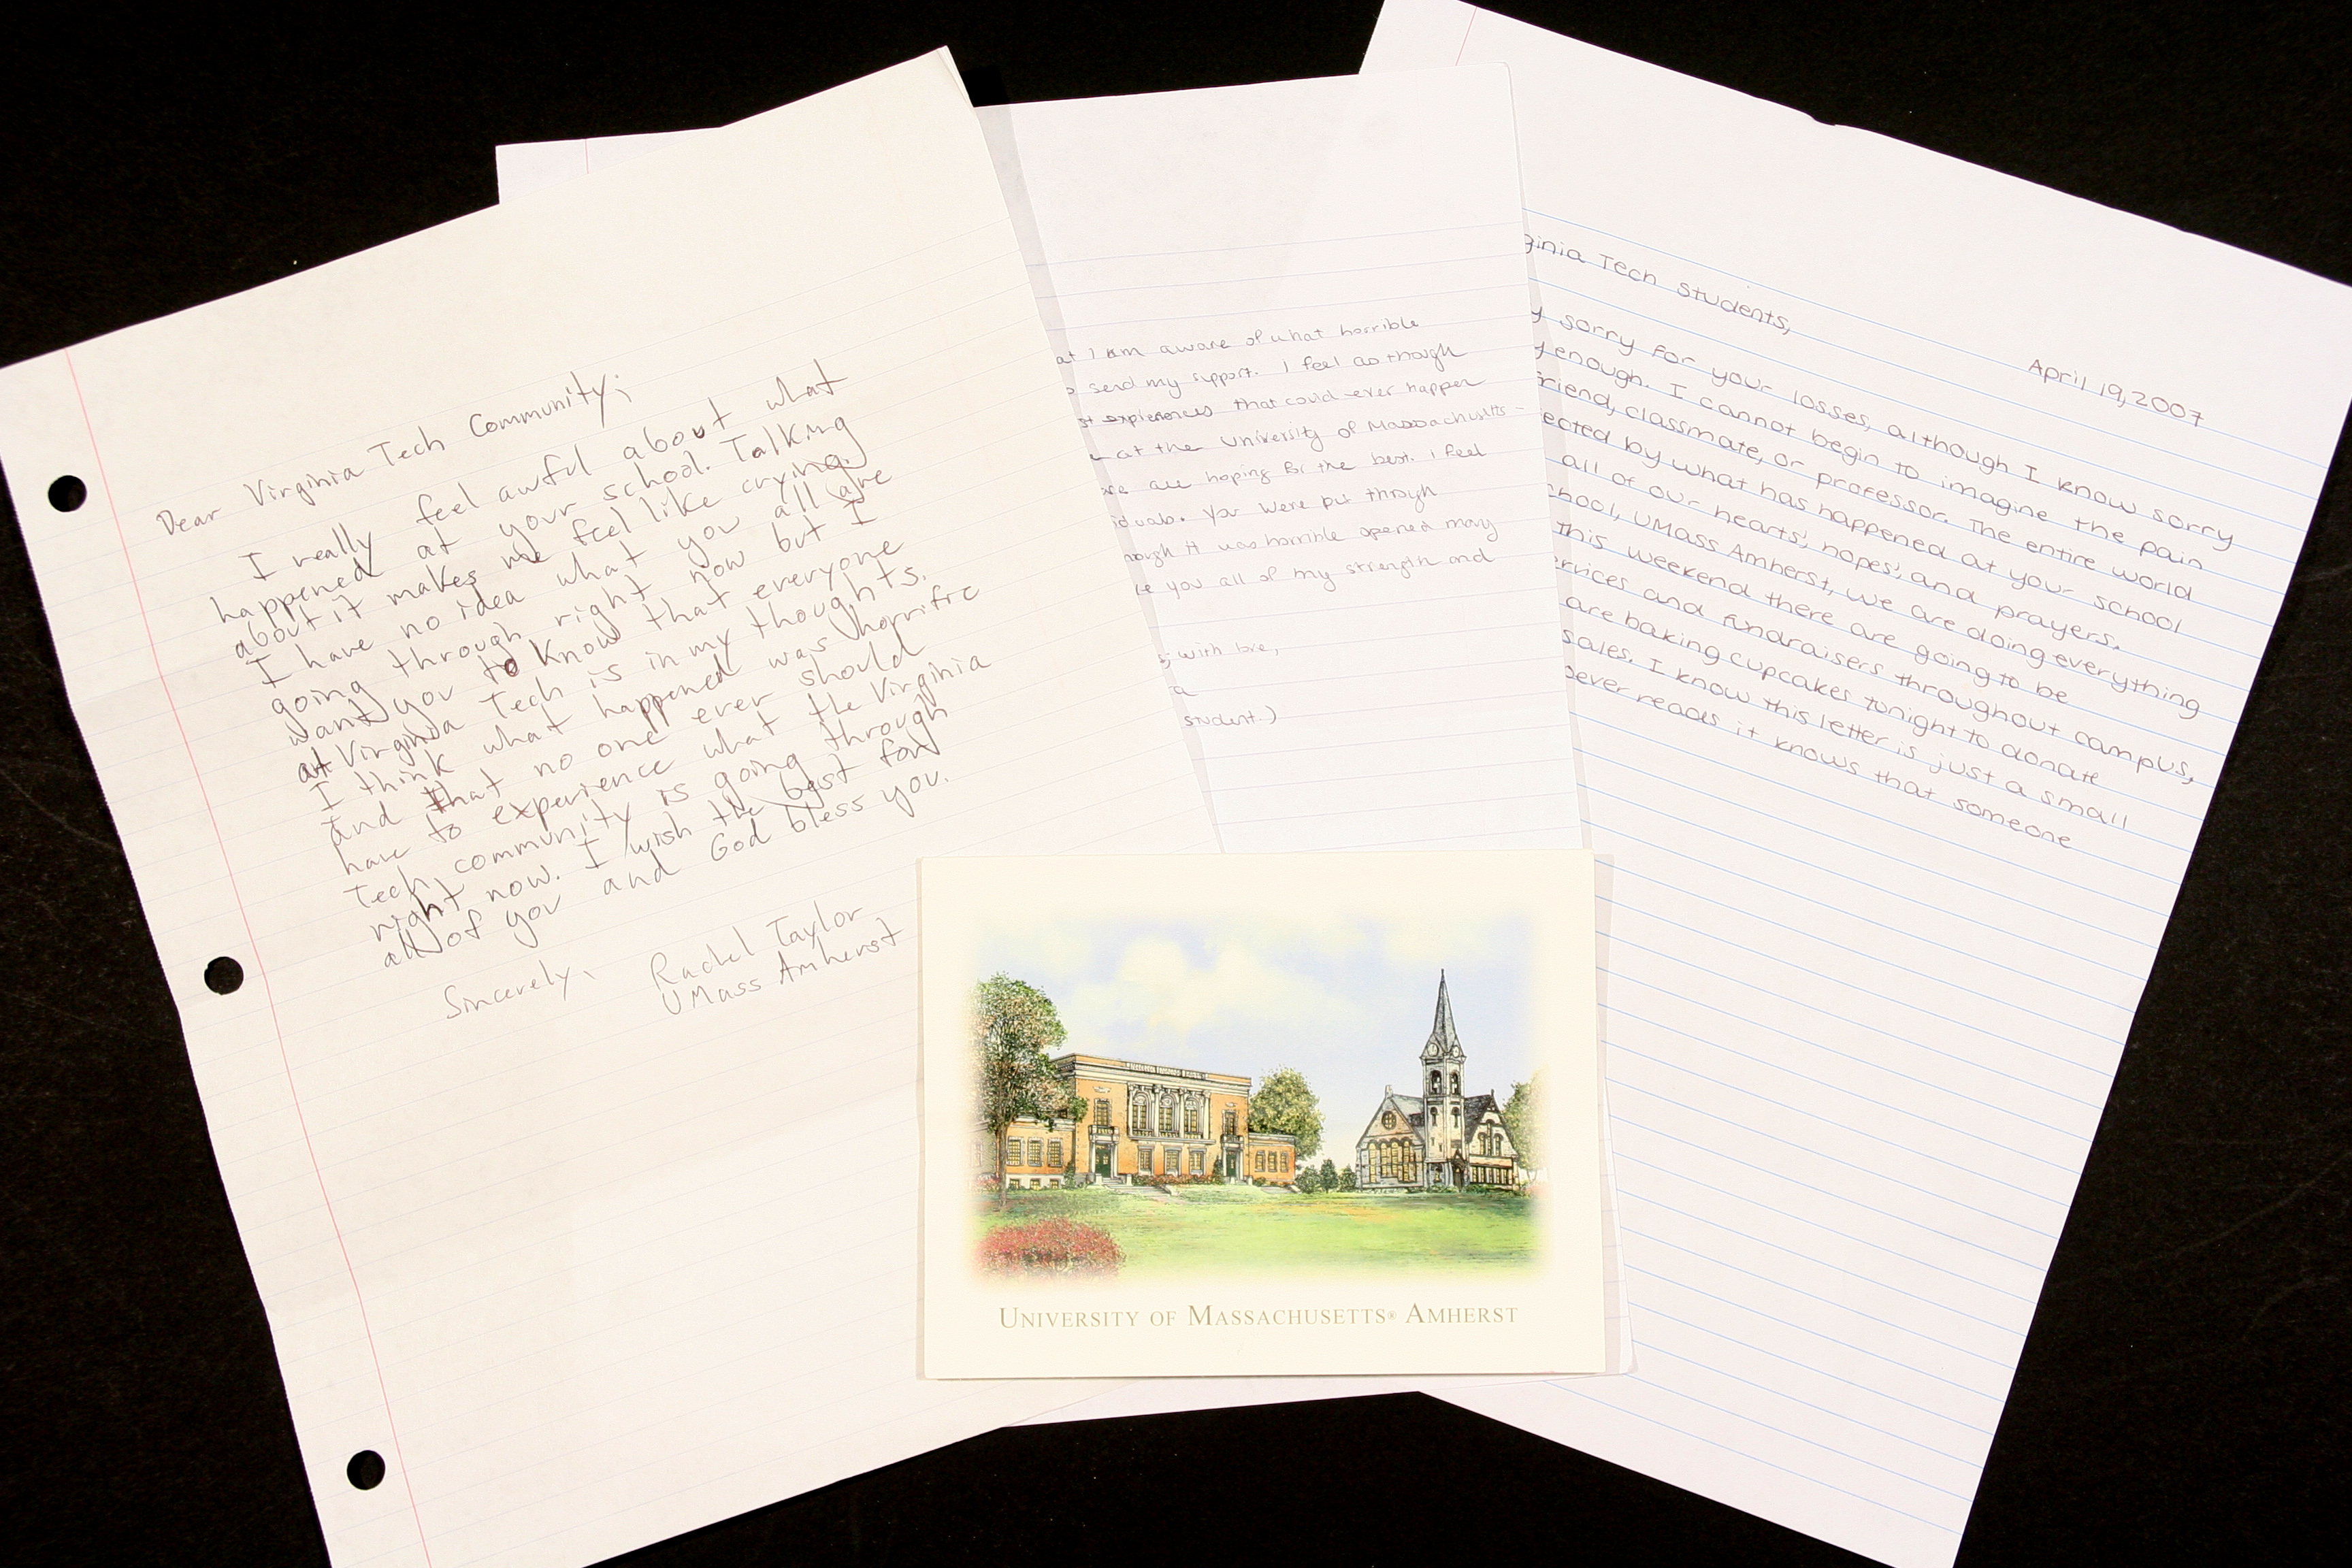 Dear Virginia Tech Community,
I really feel awful about what
happened at your school. Talking
about it makes me feel like crying.
I have no idea what you all are
going through right now but I
want you to know that everyone
at Virginia Tech is in my thoughts.
I think what happened was horrific
and that no one ever should
have to experience what the Virginia
Tech community is going through
right now. I wish the best for
all of you and God bless you.
Sincerely,
Rachel Taylor
UMass Amherst
at I am aware of what horrible
send my support. I feel as though
st expierences that could ever happen
at the University of Massachusetts -
are hoping for the best. I feel
iduals. You were put through
hough it was horrible opened many
you all of my strength and
with love,
a
student.)
ginia Tech students,
April 19, 2007
y sorry for your losses, although I know sorry
y enough. I cannot begin to imagine the pain
friend, classmate, or professor. The entire world
ected by what has happened at your school
all of our hearts', hopes', and prayers.
chool, UMass Amherst, we are doing everything
This weekend there are going to be
ervices and fundraisers throughout campus,
are baking cupcakes tonight to donate
sales. I know this letter is just a small
oever reads it knows that someone
UNIVERSITY OF MASSACHUSETTS® AMHERST